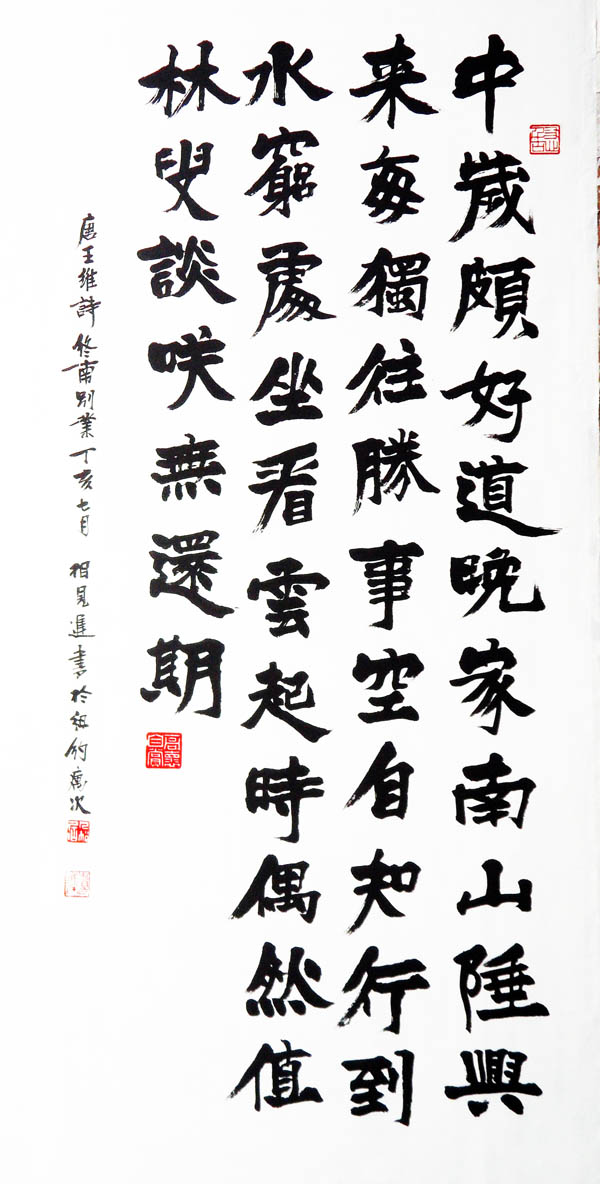 中歲頗好道晚家南山陲興
来每獨往勝事空自知行到
水窮處坐看雲起時偶然值
林叟談咲無還期
唐王維詩終南別業丁亥七月 書於紐約寓次